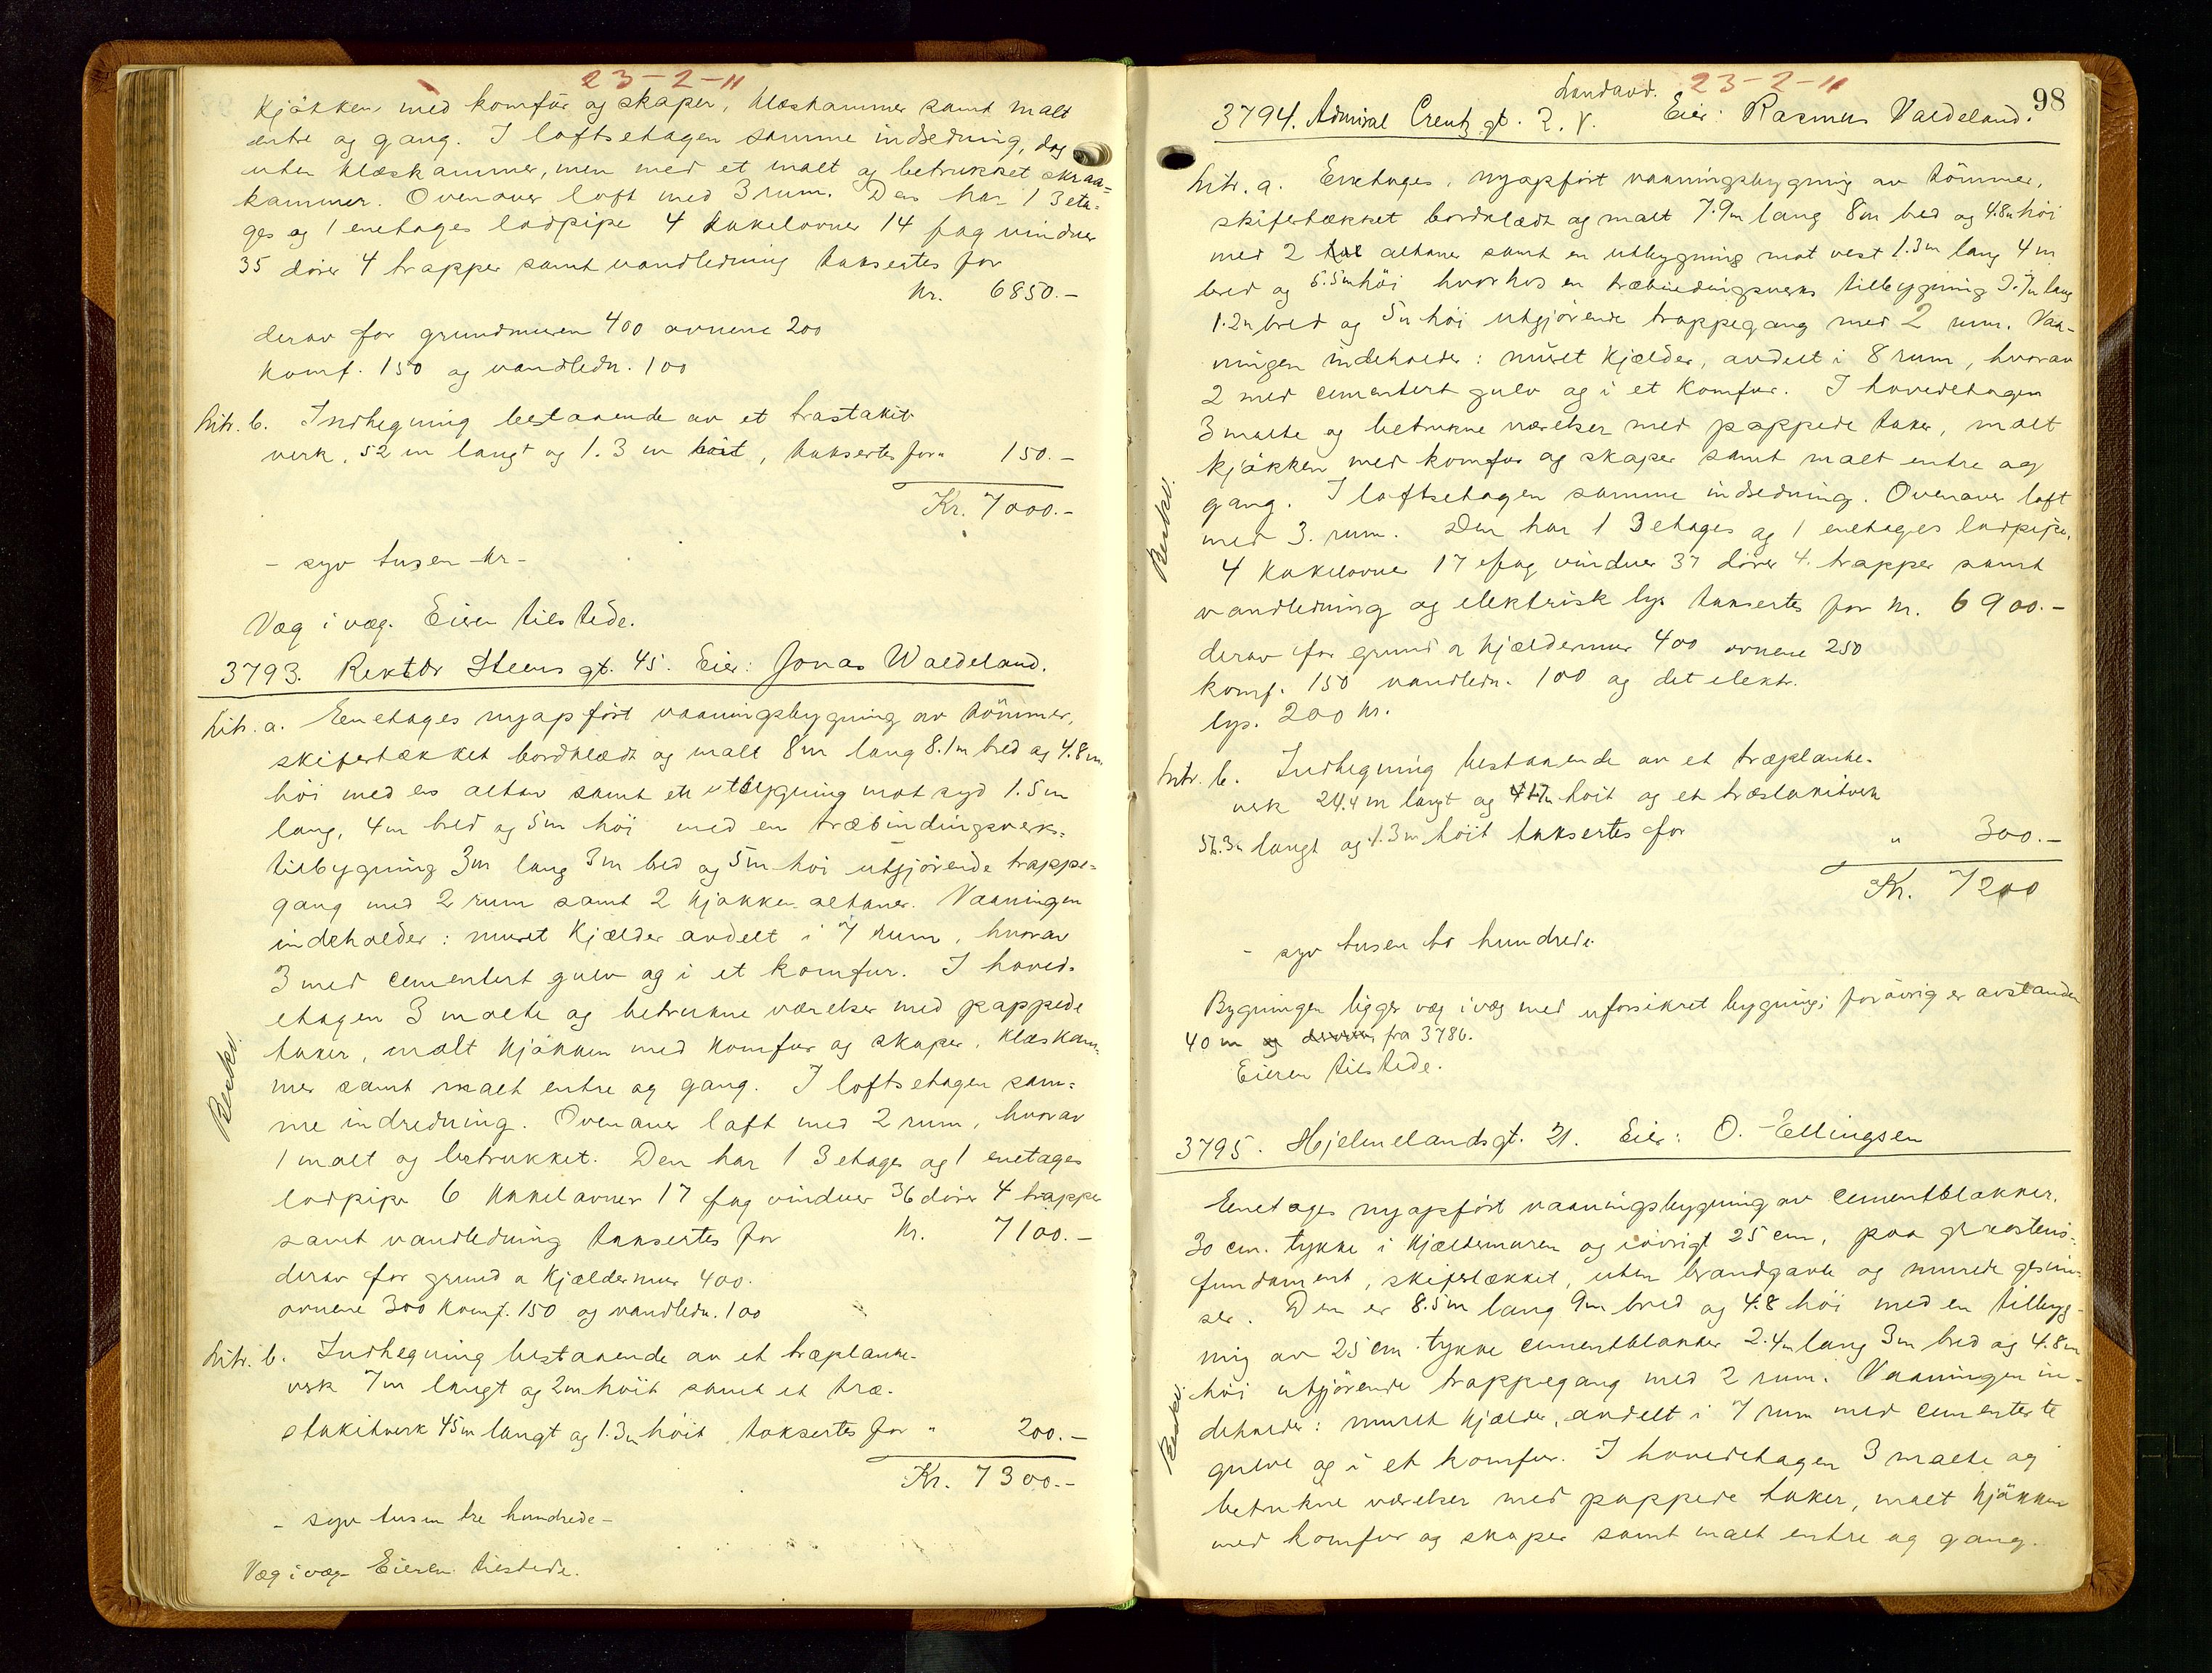 23-2-11
Kjøkken med komfür og skaper, klæskammer samt malt
entre og gang. I loftsetagen samme indredning, dog
uten klæskammer, men med et malt og betrukket skraa=
kammer. Ovenover loft med 3 rum. Den har 1 3 eta=
ges og 1 enetages lodpipe 4 kakelovner 14 fag vinduer
35 dører 4 trapper samt vandledning taksertes for
Kr. 6850.-
derav for grundmuren 400 ovnene 200
komf. 150 og vandledn. 100
Litr. b. Indhegning bestaaende av et træstakit-
verk, 52 m langt og 1.3 m høit, taksertes for " 150.-
Kr. 7000.-
- syv tusen kr -
Væg i væg. Eieren tilstede.
3793. Rektor Steens gt. 45. Eier: Jonas Waldeland.
Litr. a. Eenetages nyopført vaaningsbygning av tømmer,
skifertækket bordklædt og malt 8m lang 8.1m bred og 4.8m
høi med en altan samt en utbygning mot syd 1.5m
lang, 4m bred og 5m høi med en træbindingsverks=
tilbygning 3m lang 3m bred og 5m høi utgjørende trappe=
gang med 2 rum samt 2 kjøkken altaner. Vaaningen
indeholder: muret kjælder avdelt i 7 rum, hvorav
3 med cementert gulv og i et komfur. I hoved-
etagen 3 malte og betrukne værelser med pappede
taker, malt kjøkken med komfur og skaper, klæskam-
mer samt malt entre og gang. I loftsetagen sam=
me indredning. Ovenover loft med 2 rum, hvorav
1 malt og betrukket. Den har 1 3 etages og 1 enetages
lodpipe 6 kakelovner 17 fag vinduer 36 dører 4 trapper
samt vandledning taksertes for Kr. 7100.-
derav for grund a kjældermur 400.
ovnene 300 komf. 150 og vandledn. 100
Litr. b. Indhegning bestaaende av et træplanke-
verk 7m langt og 2m høit samt et træ-
stakitverk 45m langt og 1.3m høit, taksertes for " 200.-
Kr. 7300.-
- syv tusen tre hundrede -
Væg i væg - Eieren tilstede.
Beskv.
98
Landavd. 23-2-11
3794. Admiral Creutz gt. 2. V. Eier: Rasmus Valdeland.
Litr. a. Enetages, nyopført vaaningsbygning av tømmer,
skifertækket bordklædt og malt 7.9m lang 8m bred og 4.8m høi
med 2 altaner samt en utbygning mot vest 1.3m lang 4m
bred og 5.5m høi hvorhos en træbindingsverks tilbygning 3.7m lang
1.2m bred og 5m høi utgjørende trappegang med 2 rum. Vaa-
ningen indeholder: muret kjælder, avdelt i 8 rum, hvorav
2 med cementert gulv og i et komfur. I hovedetagen
3 malte og betrukne værelser med pappede taker, malt
kjøkken med komfur og skaper samt malt entre og
gang. I loftsetagen samme indredning. Ovenover loft
med 3. rum. Den har 1 3 etages og 1 enetages lodpipe,
4 kakelovner 17 fag vinduer 37 dører 4. trapper samt
vandledning og elektrisk lys taksertes for Kr. 6900.-
derav for grund a kjældermur 400 ovnene 250
komf. 150 vandledn. 100 og det elektr.
lys. 200 kr.
Litr. b. Indhegning bestaaende av et træplanke-
verk 24.4 m langt og 1.7m høit og et træstakitverk
56.3m langt og 1.3m høit taksertes for " 300.-
Kr. 7200
- syv tusen to hundrede.
Bygningen ligger væg i væg med uforsikret bygning; forøvrig er avstanden
40 m fra 3786.
Eieren tilstede.
Beskv.
3795. Hjelmelandsgt. 21. Eier: O. Ellingsen
Enetages nyopført vaaningsbygning av cementblokker,
30 cm. tykke i kjældermuren og iøvrigt 25 cm, paa graastens-
fundament, skifertækket, uten brandgavle og murede gesim-
ser. Den er 8.5m lang 9m bred og 4.8 høi med en tilbyg-
ning av 25 cm. tykke cementblokker 2.4m lang 3m bred og 4.8m
høi utgjørende trappegang med 2 rum. Vaaningen in-
deholder: muret kjælder, avdelt i 7 rum med cementerte
gulve og i et komfur. I hovedetagen 3 malte og
betrukne værelser med pappede taker, malt kjøkken
med komfur og skaper samt malt entre og gang.
Beskv.